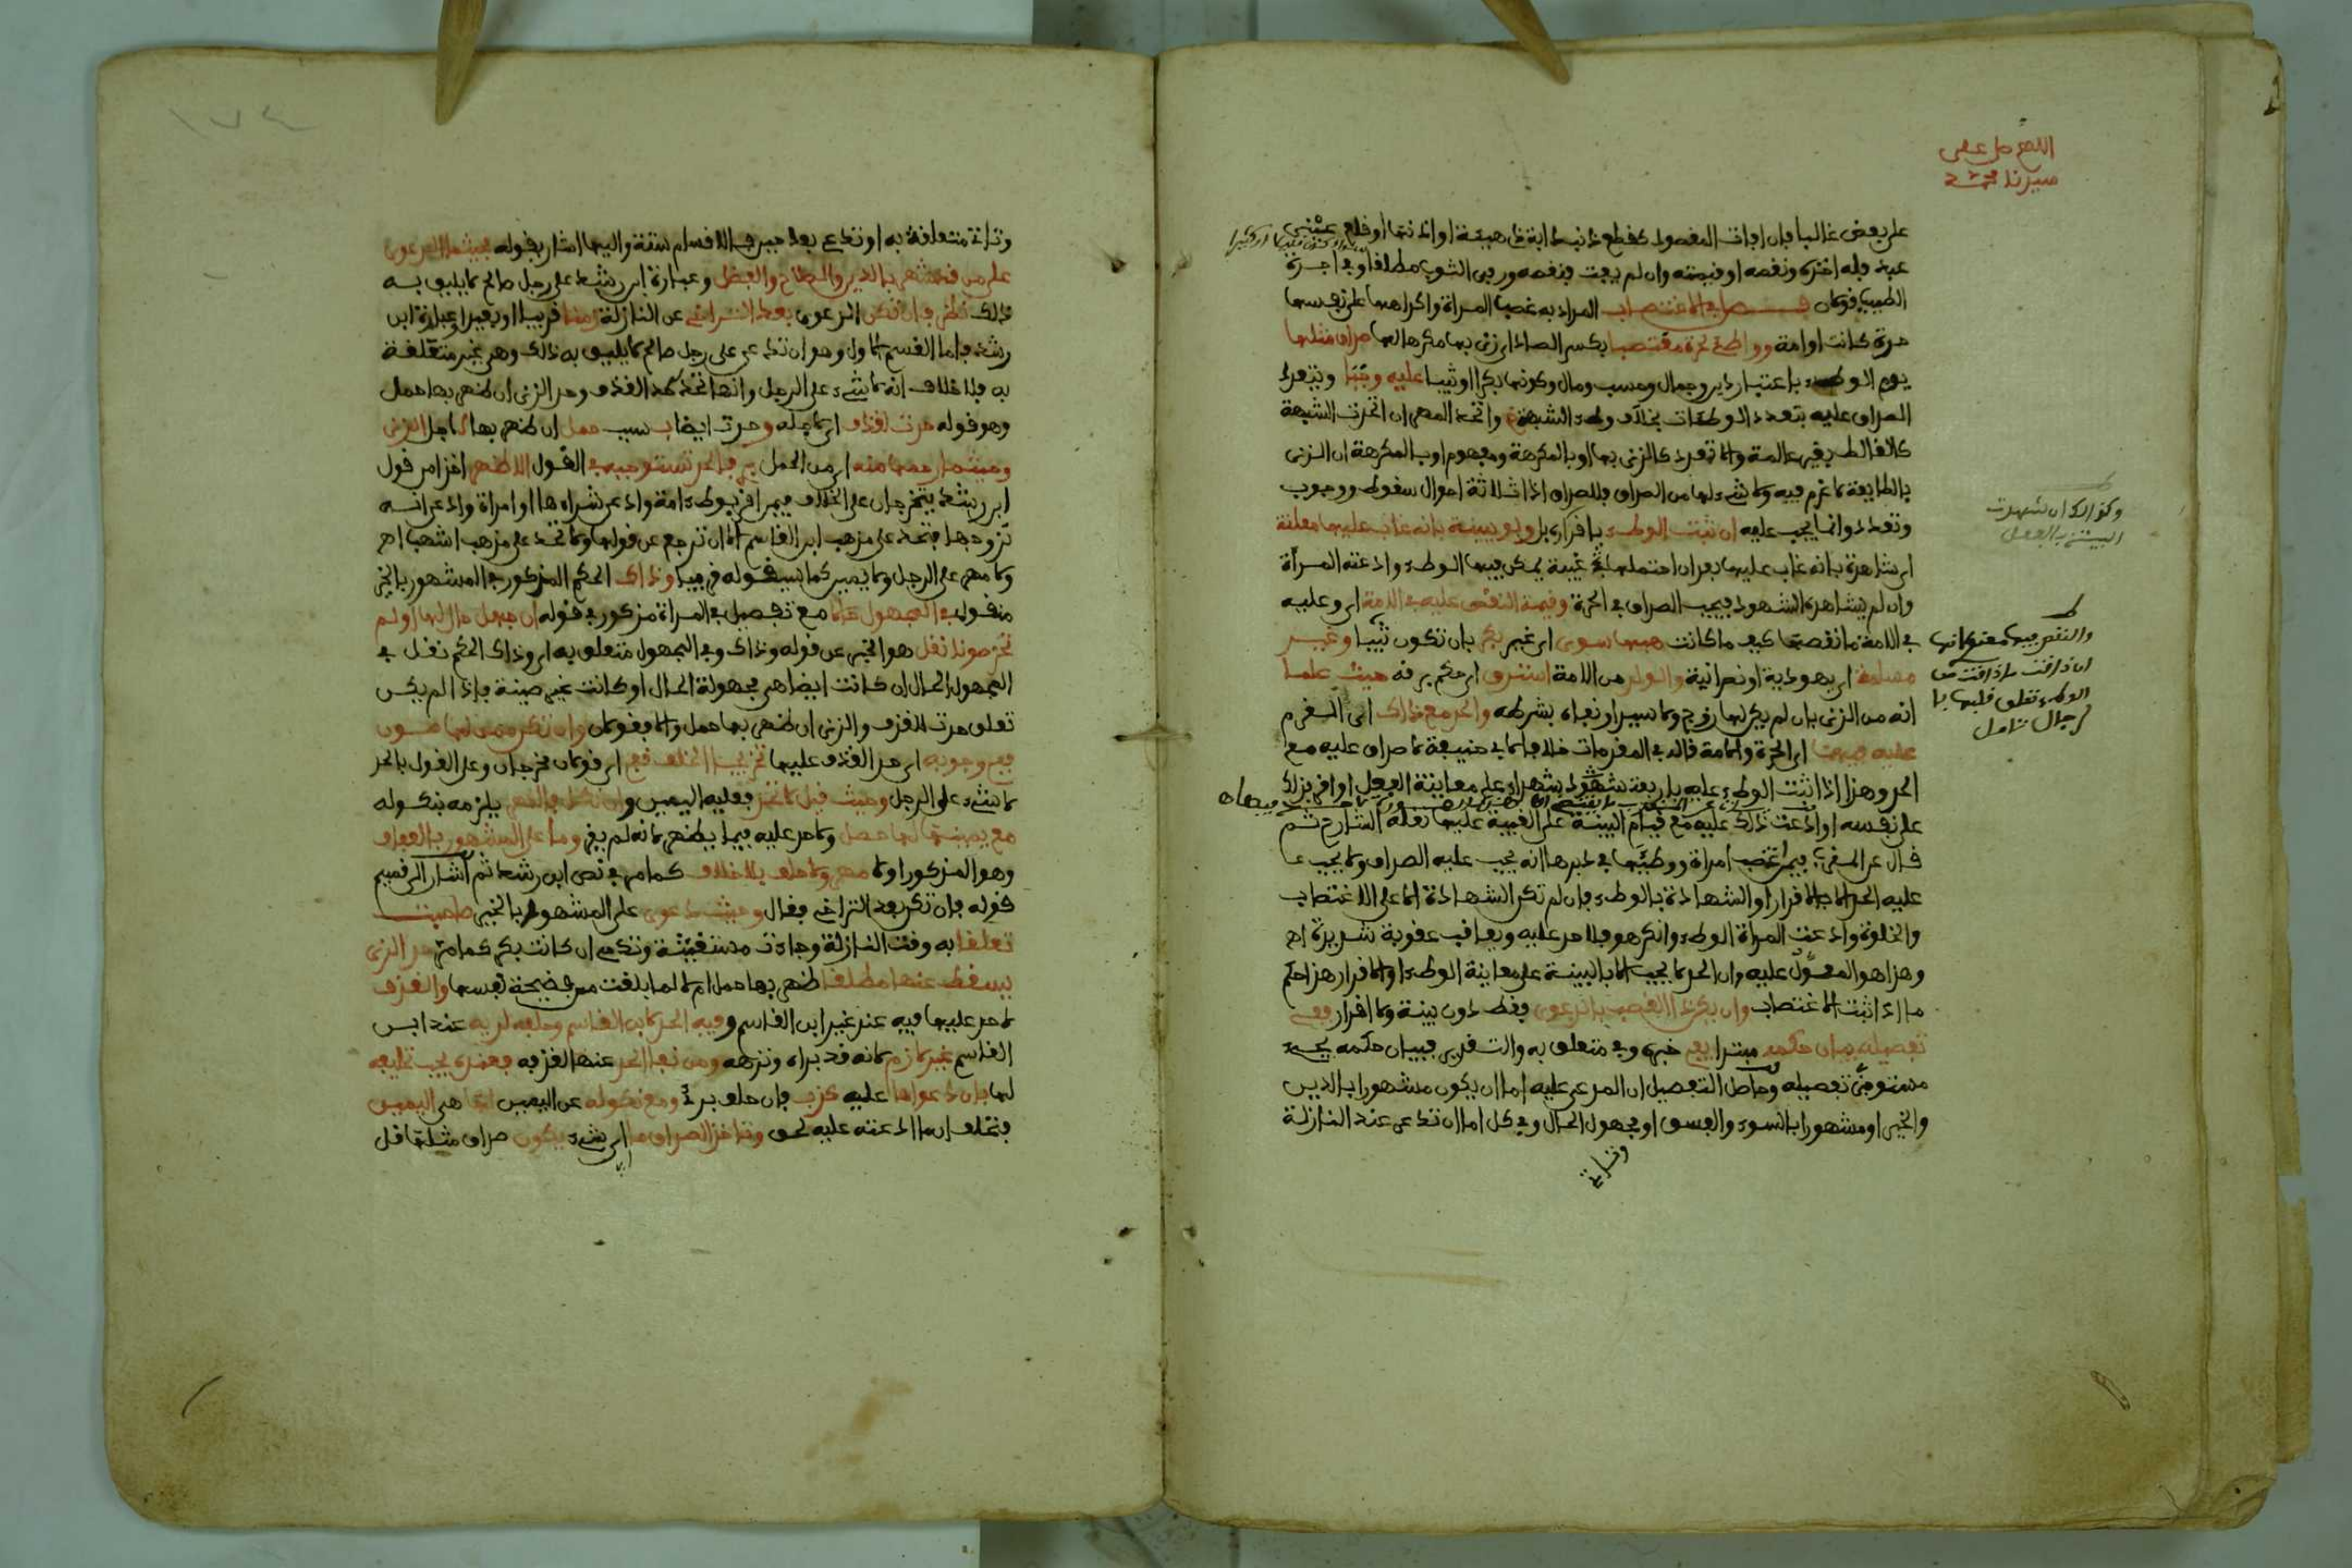 اللهم صل على
سيدنا محمد
على بعض غالبا فان افات المقصود كقطع ذنب دابة ذي هيئة او اذنها او قلع عيني
عبد فله اخذه ونقصه او قيمته وان لم يفت فنقصه ورفي الثوب مطلقا وفي اجرة
الطبيب قولان فصل في الاغتصاب المراد به غصب المراة واكراهها على نفسها
حرة كانت او امة وواطئ لحرة مغتصبا بكسر الصاد اي زنى بها مكرها لها صداق مثلها
يوم الوطء باعتبار دين وجمال وحسب ومال وكونها بكرا او ثيبا عليه وجبا ويتعدد
الصداق عليه بتعدد الوطئات بخلاف وطء الشبهة واتحد المهر ان اتحدت الشبهة
كالغالط بغير عالمة والا تعدد كالزنى بها او بالمكرهة ومفهوم او بالمكرهة ان الزنى
بالطايعة لا غرم فيه ولا شيء لها من الصداق فللصداق اذا ثلاثة احوال سقوط ووجوب
وتعدد وانما يجب عليه ان ثبت الوطء باقراره بل ولو ببينة بانه غاب عليها معلنة
اي شاهدة بانه غاب عليها بعد ان احتملها غيبة يمكن فيها الوطء وادعته المرأة
وان لم يشاهده الشهود فيجب الصداق في الحرة وقيمة النقص عليه في الامة اي وعليه
في الامة ما نقصها كيف ما كانت هبها سوى اي غير بكر بان تكون ثيبا وغير
مسلمة اي يهودية او نصرانية والولد من الامة استرق اي حكم برقه حيث علما
انه من الزنى بان لم يكن لها زوج ولا سيد او نفاه بشرطه والحد مع ذاك اي الغرم
عليه فيهما اي الحرة والامة قاله في المقدمات خلافا لابي حنيفة لا صداق عليه مع
الحد وهذا اذا اثبت الوطء عليه باربعة شهود بشهادة على معاينة الفعل او اقر بذلك
على نفسه او ادعت ذلك عليه مع قيام البينة على الغيبة عليها نقله الشارح ثم
قال عن المفري فيمن اغتصب امراة ووطئها في دبرها انه يجب عليه الصداق ولا يجب
عليه الحد الا بالاقرار او الشهادة بالوطء فان لم تكن الشهادة الا على الاغتصاب
والخلوة وادعت المراة الوطء وانكر هو فلا حد عليه ويعاقب عقوبة شديدة اه
وهذا هو المعول عليه وان الحد لا يجب الا بالبينة على معاينة الوطء او الاقرار هذا حكم
ما اذا ثبت الاغتصاب وان يكن ذا الغصب بالدعوى فقط دون بينة ولا اقرار ففي
تفصيله بيان حكمه مبتدا يفي خبره وفي متعلق به والتقدير فبيان حكمه يجيء
مستوفى تفصيله وحاصل التفصيل ان المدعى عليه اما ان يكون مشهورا بالدين
والخير او مشهورا بالسوء والفسق او مجهول الحال وفي كل اما ان تدعي عند النازلة
وتارة
وكذا لك ان شهدت
البينة بالفعل
وتارة متعلقة به او تدعي بعد حين فالاقسام ستة واليها اشار بقوله فحيثما الدعوى
على من قد شهر بالدين والصلاح والفضل وعبارة ابن رشد على رجل صالح لا يليق به
ذلك نظر فان تكن الدعوى بعد التراخي عن النازلة زمنا قريبا او بعيدا وعبارة ابن
رشد فاما القسم الاول وهو ان تدعي على رجل صالح لا يليق به ذلك وهي غير متعلقة
به فلا خلاف انه لا شيء على الرجل وانها تحد حد القذف وحد الزنى ان ظهر بها حمل
وهو قوله حدت لقذف اي لاجله وحدت ايضا بسبب حمل ان ظهر بها لاجل الزنى
وحيثما رحمها منه اي من الحمل بري فالحد تستوجبه في القول الاظهر اخذا من قول
ابن رشد يتخرجان على الخلاف فيمن اقر بوطء امة وادعى شراءها او امراة وادعى انه
تزوجها فتحد على مذهب ابن القاسم الا ان ترجع عن قولها ولا تحد على مذهب اشهب اه
ولا مهر على الرجل ولا يمين كما سيقوله قريبا وذاك الحكم المذكور في المشهور بالخير
منقول في المجهول حالا مع تفصيل في المراة مذكور في قوله ان جهل حالها او لم
تحز صونا نقل هو الخبر عن قوله وذاك وفي المجهول متعلق به اي وذاك الحكم نقل في
المجهول الحال ان كانت ايضا هي مجهولة الحال او كانت غير صينة فاذا لم يكن
تعلق حدت للقذف والزنى ان ظهر بها حمل والا فقولان وان تكن ممن لها صون
ففي وجوبه اي حد القذف عليها تخريجا الخلف قفي اي قولان مخرجان وعلى القول بالحد
لا شيء على الرجل وحيث قيل لا تحد فعليه اليمين وان نكل فالمهر يلزمه بنكوله
مع يمينها لها حصل ولا حد عليه فيما يظهر لانه لم يقر وما على المشهور بالعفاف
وهو المذكور اولا مهر ولا حلف بلا خلاف كما مر في نص ابن رشد ثم اشار الى قسيم
قوله فان تكن بعد التراخي فقال وحيث دعوى على المشهور بالخير صاحبت
تعلقا به وقت النازلة وجاءت مستغيثة وتدمى ان كانت بكرا كما مر حد الزنى
يسقط عنها مطلقا ظهر بها حمل ام لا لما بلغت من فضيحة نفسها والقذف
لا حد عليها فيه عند غير ابن القاسم وفيه الحد لابن القاسم وحلفه لديه عند ابن
القاسم غير لازم لانه قد براه ونزهه ومن نفى الحد عنها القذف فعنده يجب تحليفه
لها بان دعواها عليه كذب فان حلف برئ ومع نكوله عن اليمين لها هي اليمين
فتحلف ان ما ادعته عليه لحق وتاخذ الصداق ما اي شيء يكون صداق مثلها قل